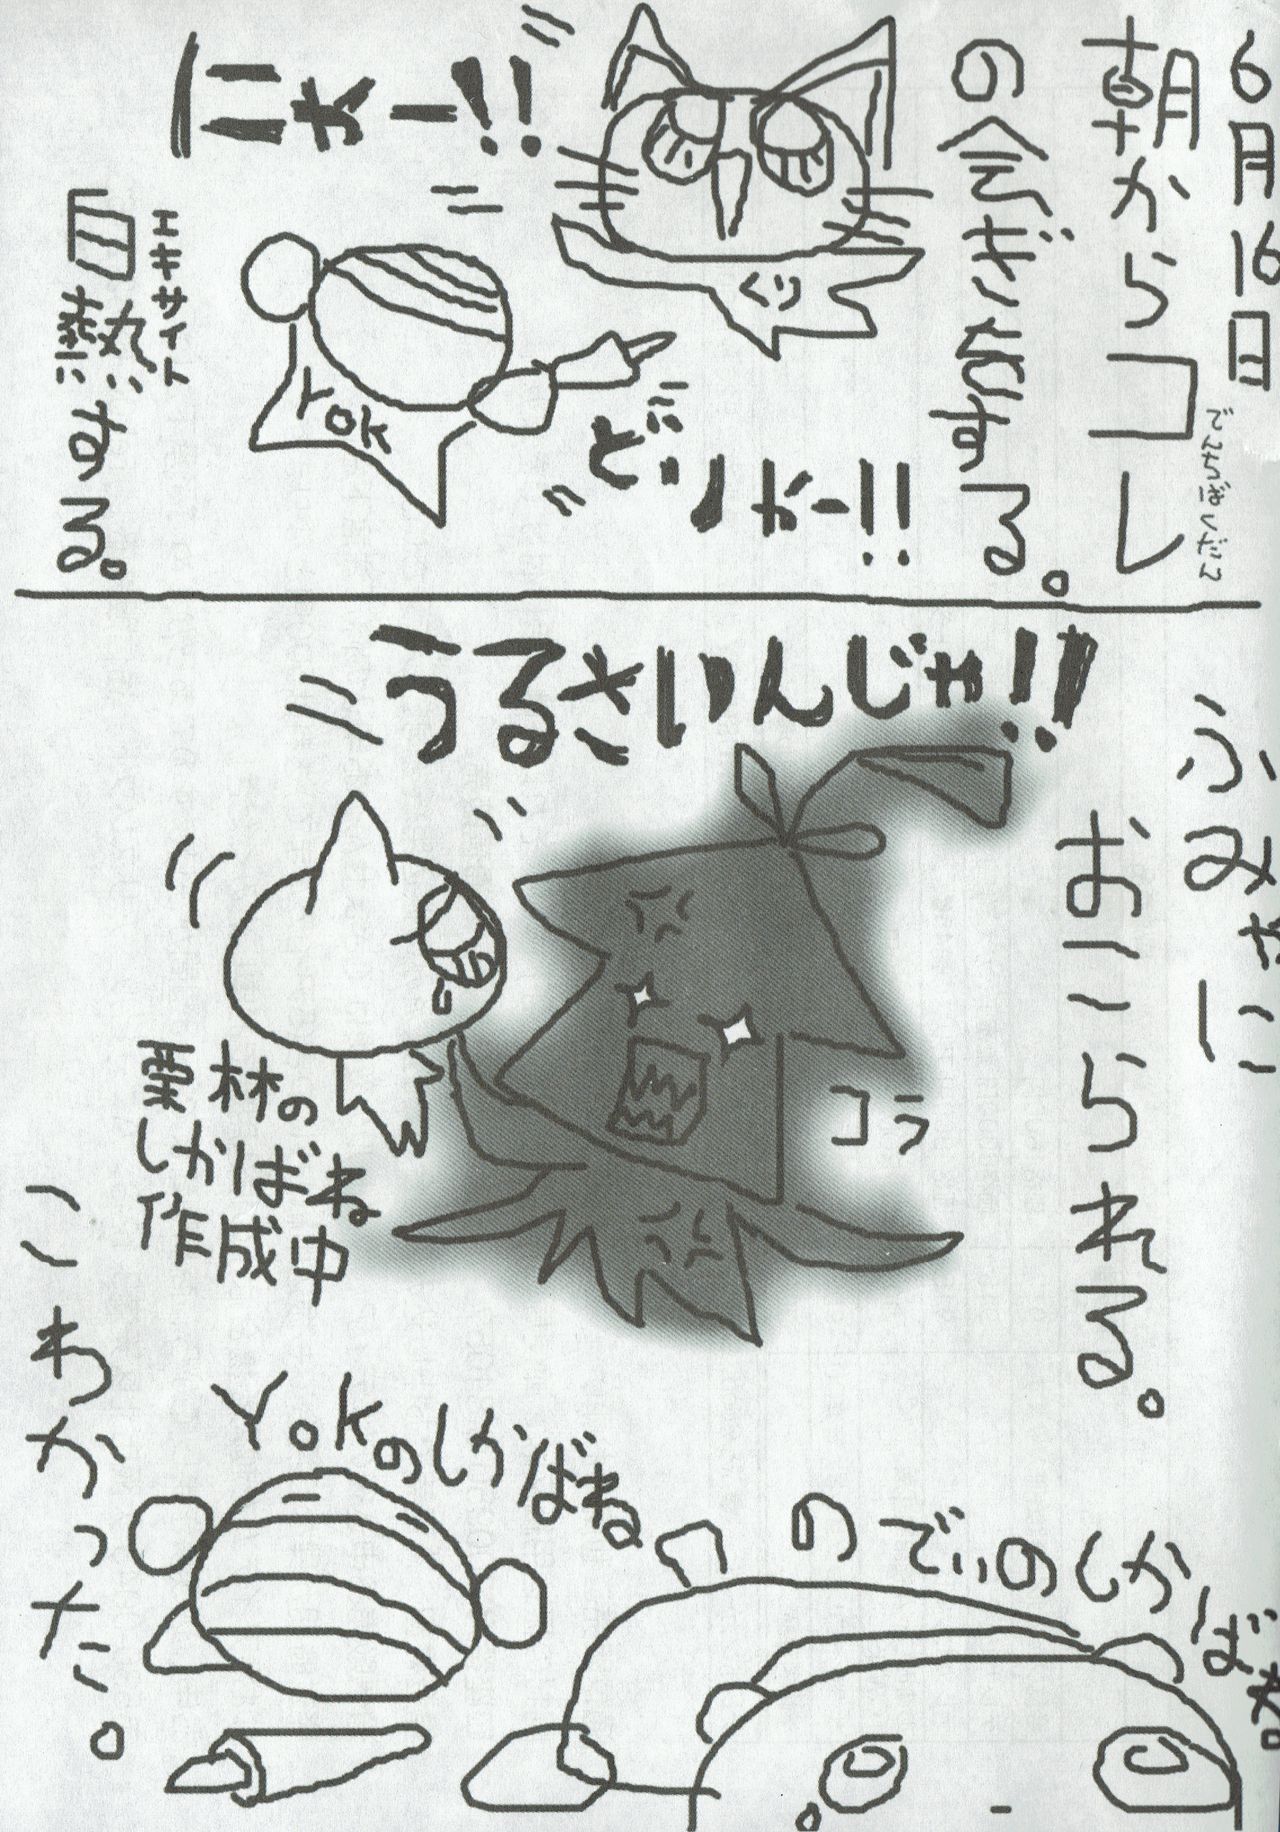 6月16日
朝からコレ
でんちばくだん
の会ぎをする。
にょー!!
くり
Yok
どりゃー!!
エキサイト
白熱する。
ふみゃに
おこられる。
うるさいんじゃ!!
コラ
栗林の
しかばね
作成中
Yokのしかばね
のでぃのしかばね
こわかった。